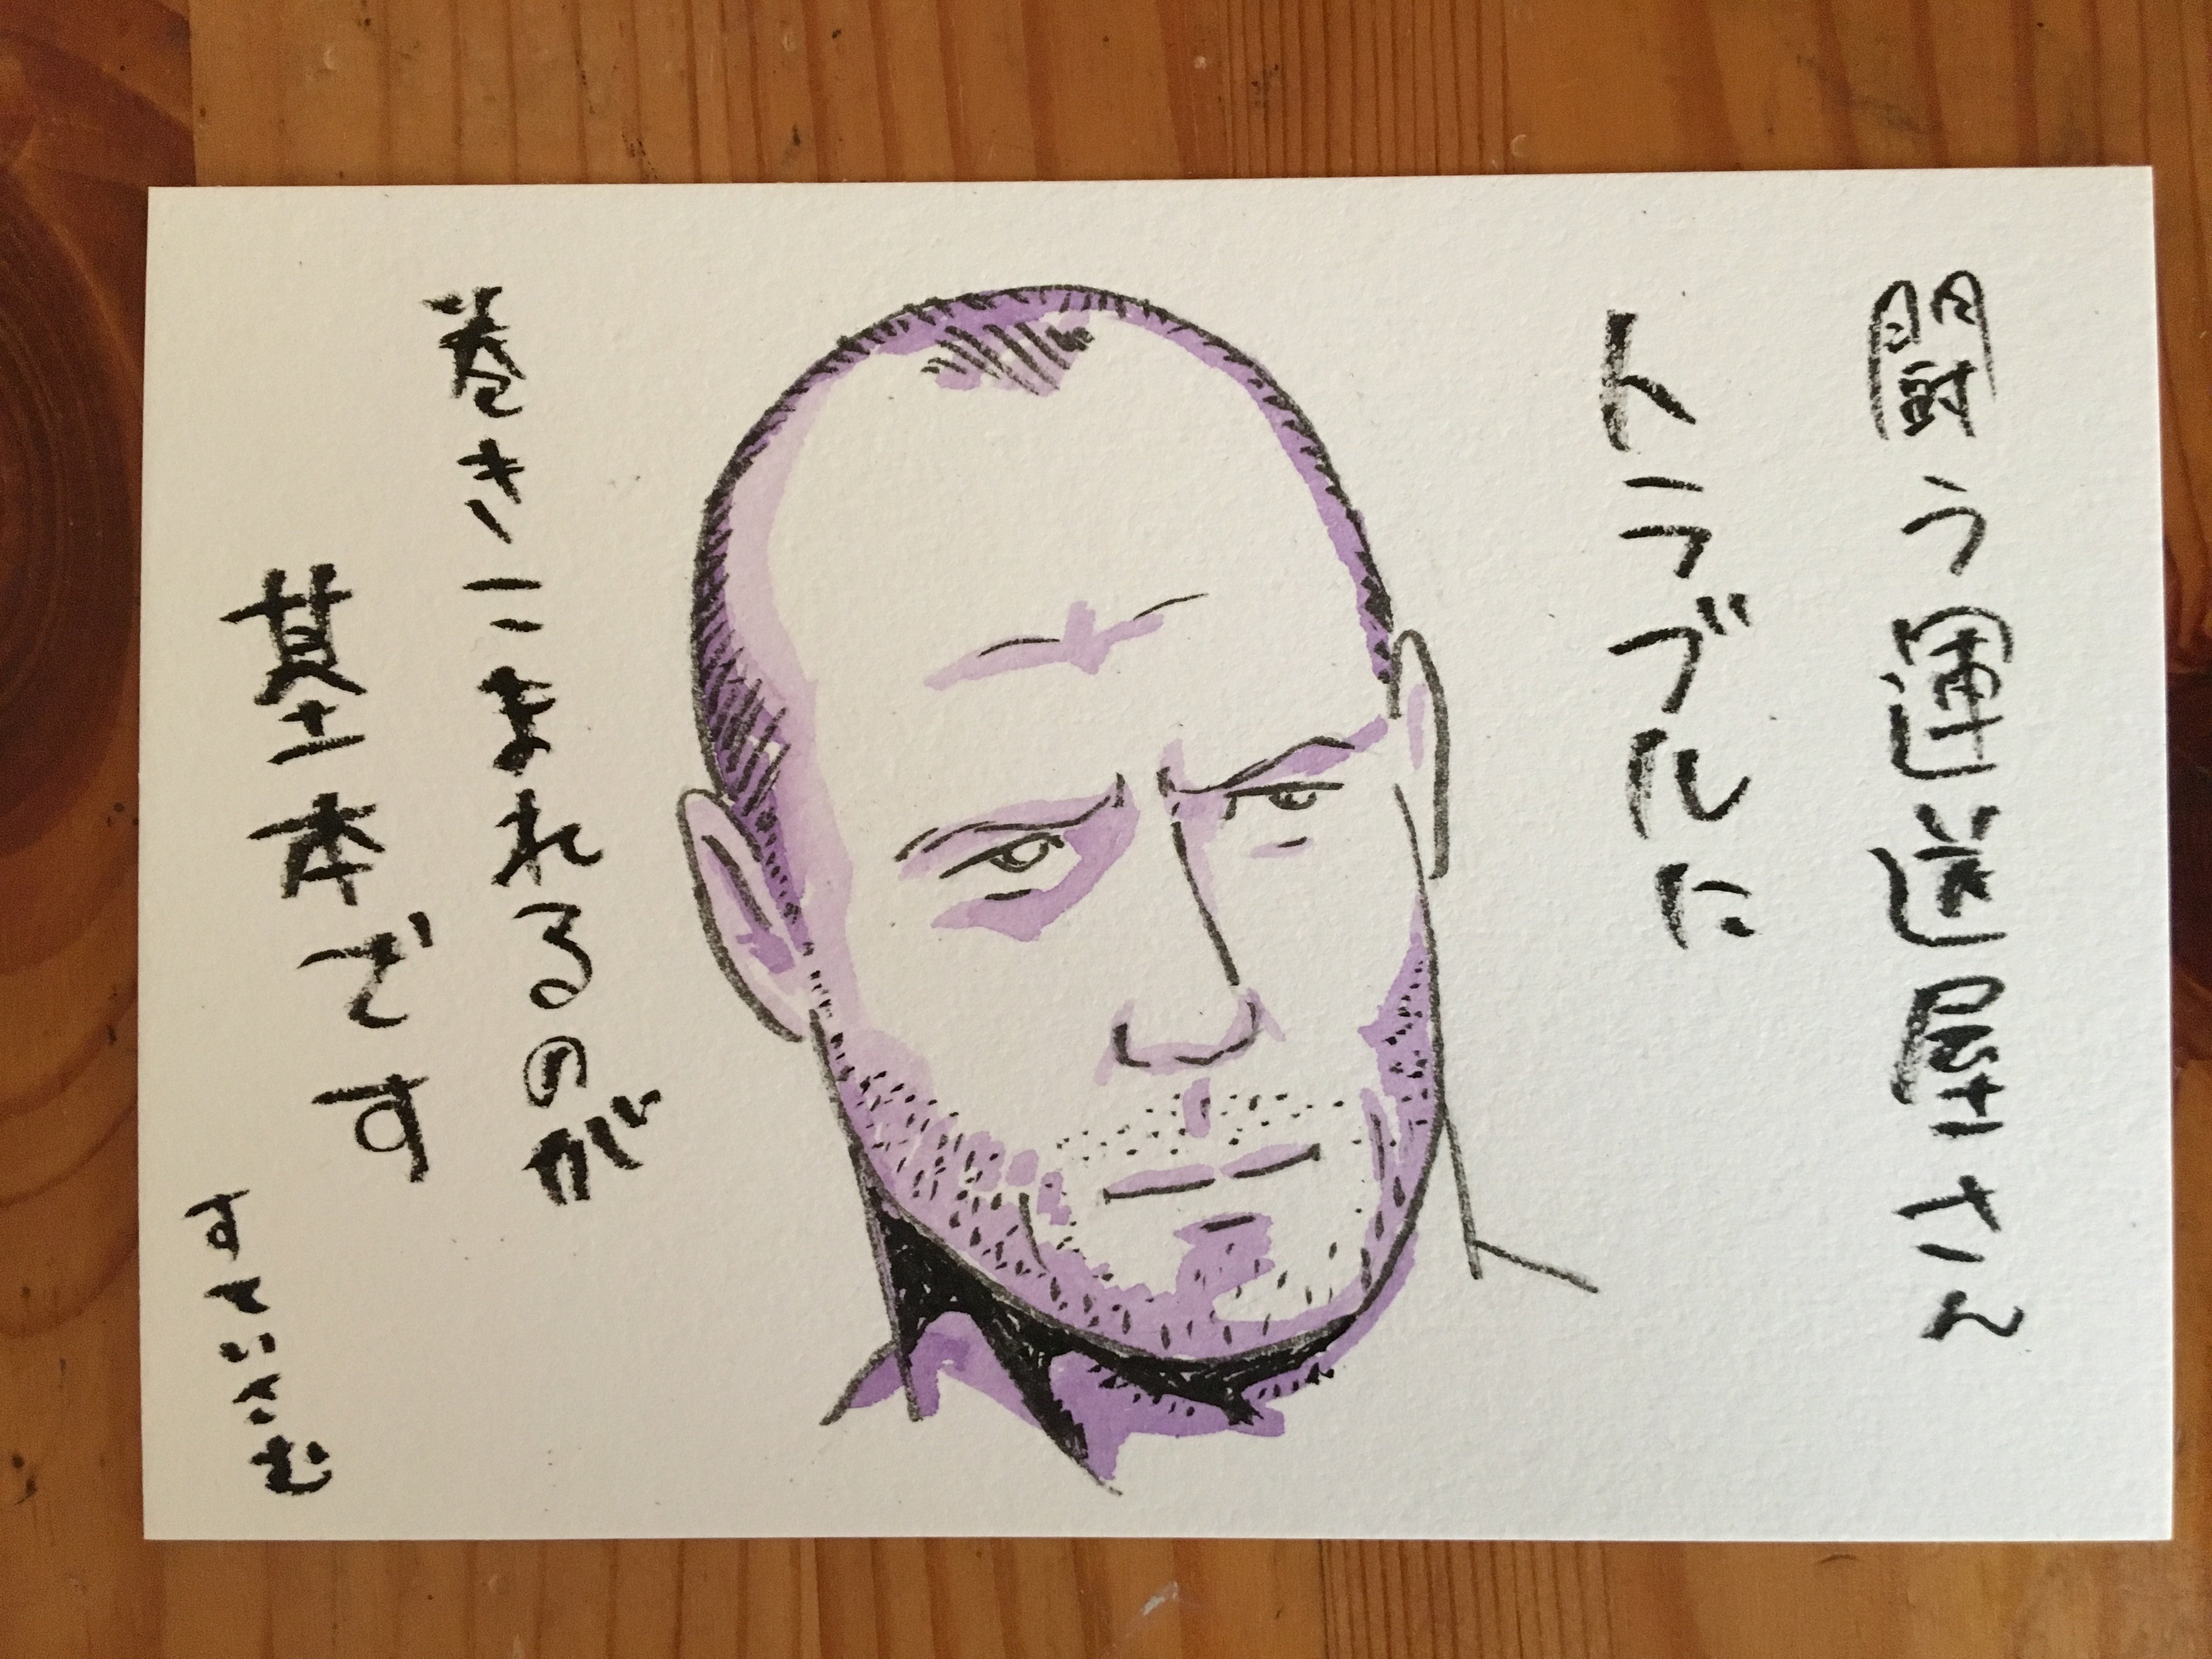 闘う運送屋さん
トラブルに
巻きこまれるのが
基本です